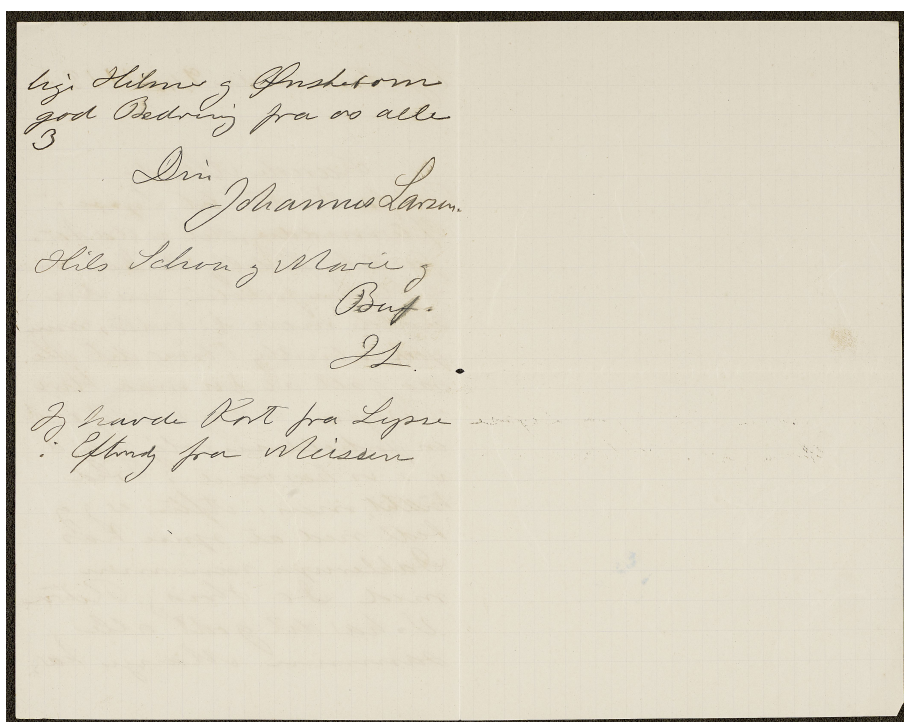 lige Hilsner og Ønske om
god Bedring fra os alle
3
Din
Johannes Larsen.
Hils Schou og Marie og
Buf.
JL.
Jeg havde Kort fra Lysse
i Eftmdg fra Meissen